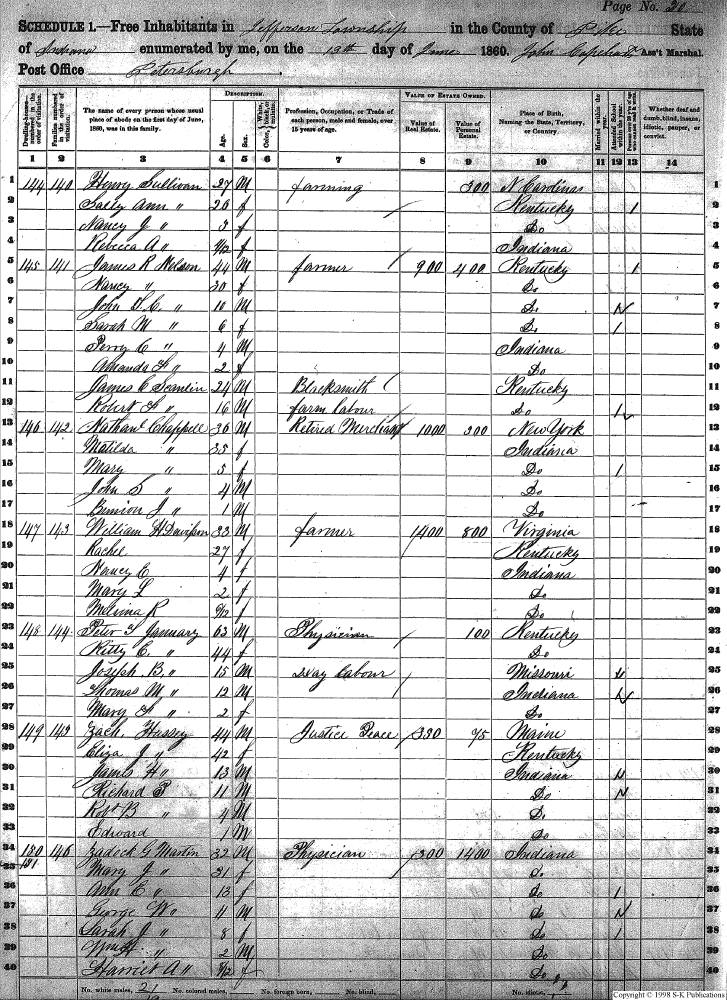 Page No. 20
SCHEDULE 1.—Free Inhabitants in Jefferson Township in the County of Pike State
of Indiana enumerated by me, on the 19th day of June 1860. John Capehart Ass't Marshal.
Post Office Petersburgh
DESCRIPTION. VALUE OF ESTATE OWNED.
Dwelling-houses—numbered in the order of visitation. Families numbered in the order of visitation. The name of every person whose usual place of abode on the first day of June, 1860, was in this family. Age. Sex. Color, White, black, or mulatto. Profession, Occupation, or Trade of each person, male and female, over 15 years of age. Value of Real Estate. Value of Personal Estate. Place of Birth, Naming the State, Territory, or Country. Married within the year. Attended School within the year. Whether deaf and dumb, blind, insane, idiotic, pauper, or convict.
1 2 3 4 5 6 7 8 9 10 11 12 13 14
1 144 140 Henry Sullivan 27 M farming 300 N Carolina 1
2 Sally Ann " 20 f Kentucky 1 2
3 Nancy J " 3 f Do 3
4 Rebecca A " f Indiana 4
5 145 141 James R Nelson 44 M farmer 900 400 Kentucky 1 5
6 Nancy " 30 f Do 6
7 John " 10 M Do 7
8 Sarah M " 6 f Do 1 8
9 Perry C " 4 M Indiana 9
10 Amanda " 2 f Do 10
11 James C Scanlin 24 M Blacksmith Kentucky 11
12 Robert " 16 M farm labour Do 12
13 146 142 Nathanl Chappell 36 M Retired Merchant 1000 200 New York 13
14 Matilda " 35 f Indiana 14
15 Mary " 5 f Do 1 15
16 John S " 4 M Do 16
17 J " 1 M Do 17
18 147 143 William H Davisson 33 M farmer 1400 800 Virginia 18
19 Rachel 27 f Kentucky 19
20 Nancy E 4 f Indiana 20
21 Mary L 2 f Do 21
22 Melvina R f Do 22
23 148 144 Peter January 63 M Physician 100 Kentucky 23
24 Kitty C. " 44 f Do 24
25 Joseph B. " 15 M Day labour Missouri 25
26 Thomas M, " 12 M Indiana 26
27 Mary " 2 f Do 27
28 149 145 Zach Hussey 44 M Justice Peace 350 75 Maine 28
29 Eliza J " 42 f Kentucky 29
30 James H " 13 M Indiana 30
31 Richard 11 M Do 31
32 Robt B " 4 M Do 32
33 Edward 1 M Do 33
34 150 146 Zadock G Martin 32 M Physician 300 1400 Indiana 34
35 151 Mary J " 31 f Do 35
36 Ann E " 13 f Do 1 36
37 George W " 11 M Do 37
38 Sarah J " 8 f Do 1 38
39 " 2 M Do 39
40 Harriet A " f Do 40
No. white males, 21 No. colored males, No. foreign born, No. blind, No. idiotic,
Copyright © 1998 S-K Publications